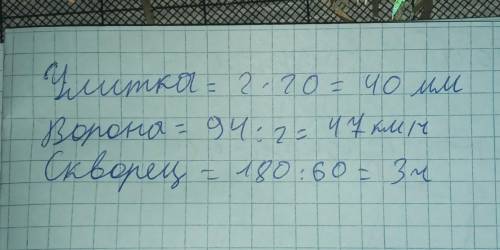 Улитка = 2 · 20 = 40 мм
Ворона = 94 : 2 = 47 км/ч
Скворец = 180 : 60 = 3 ч